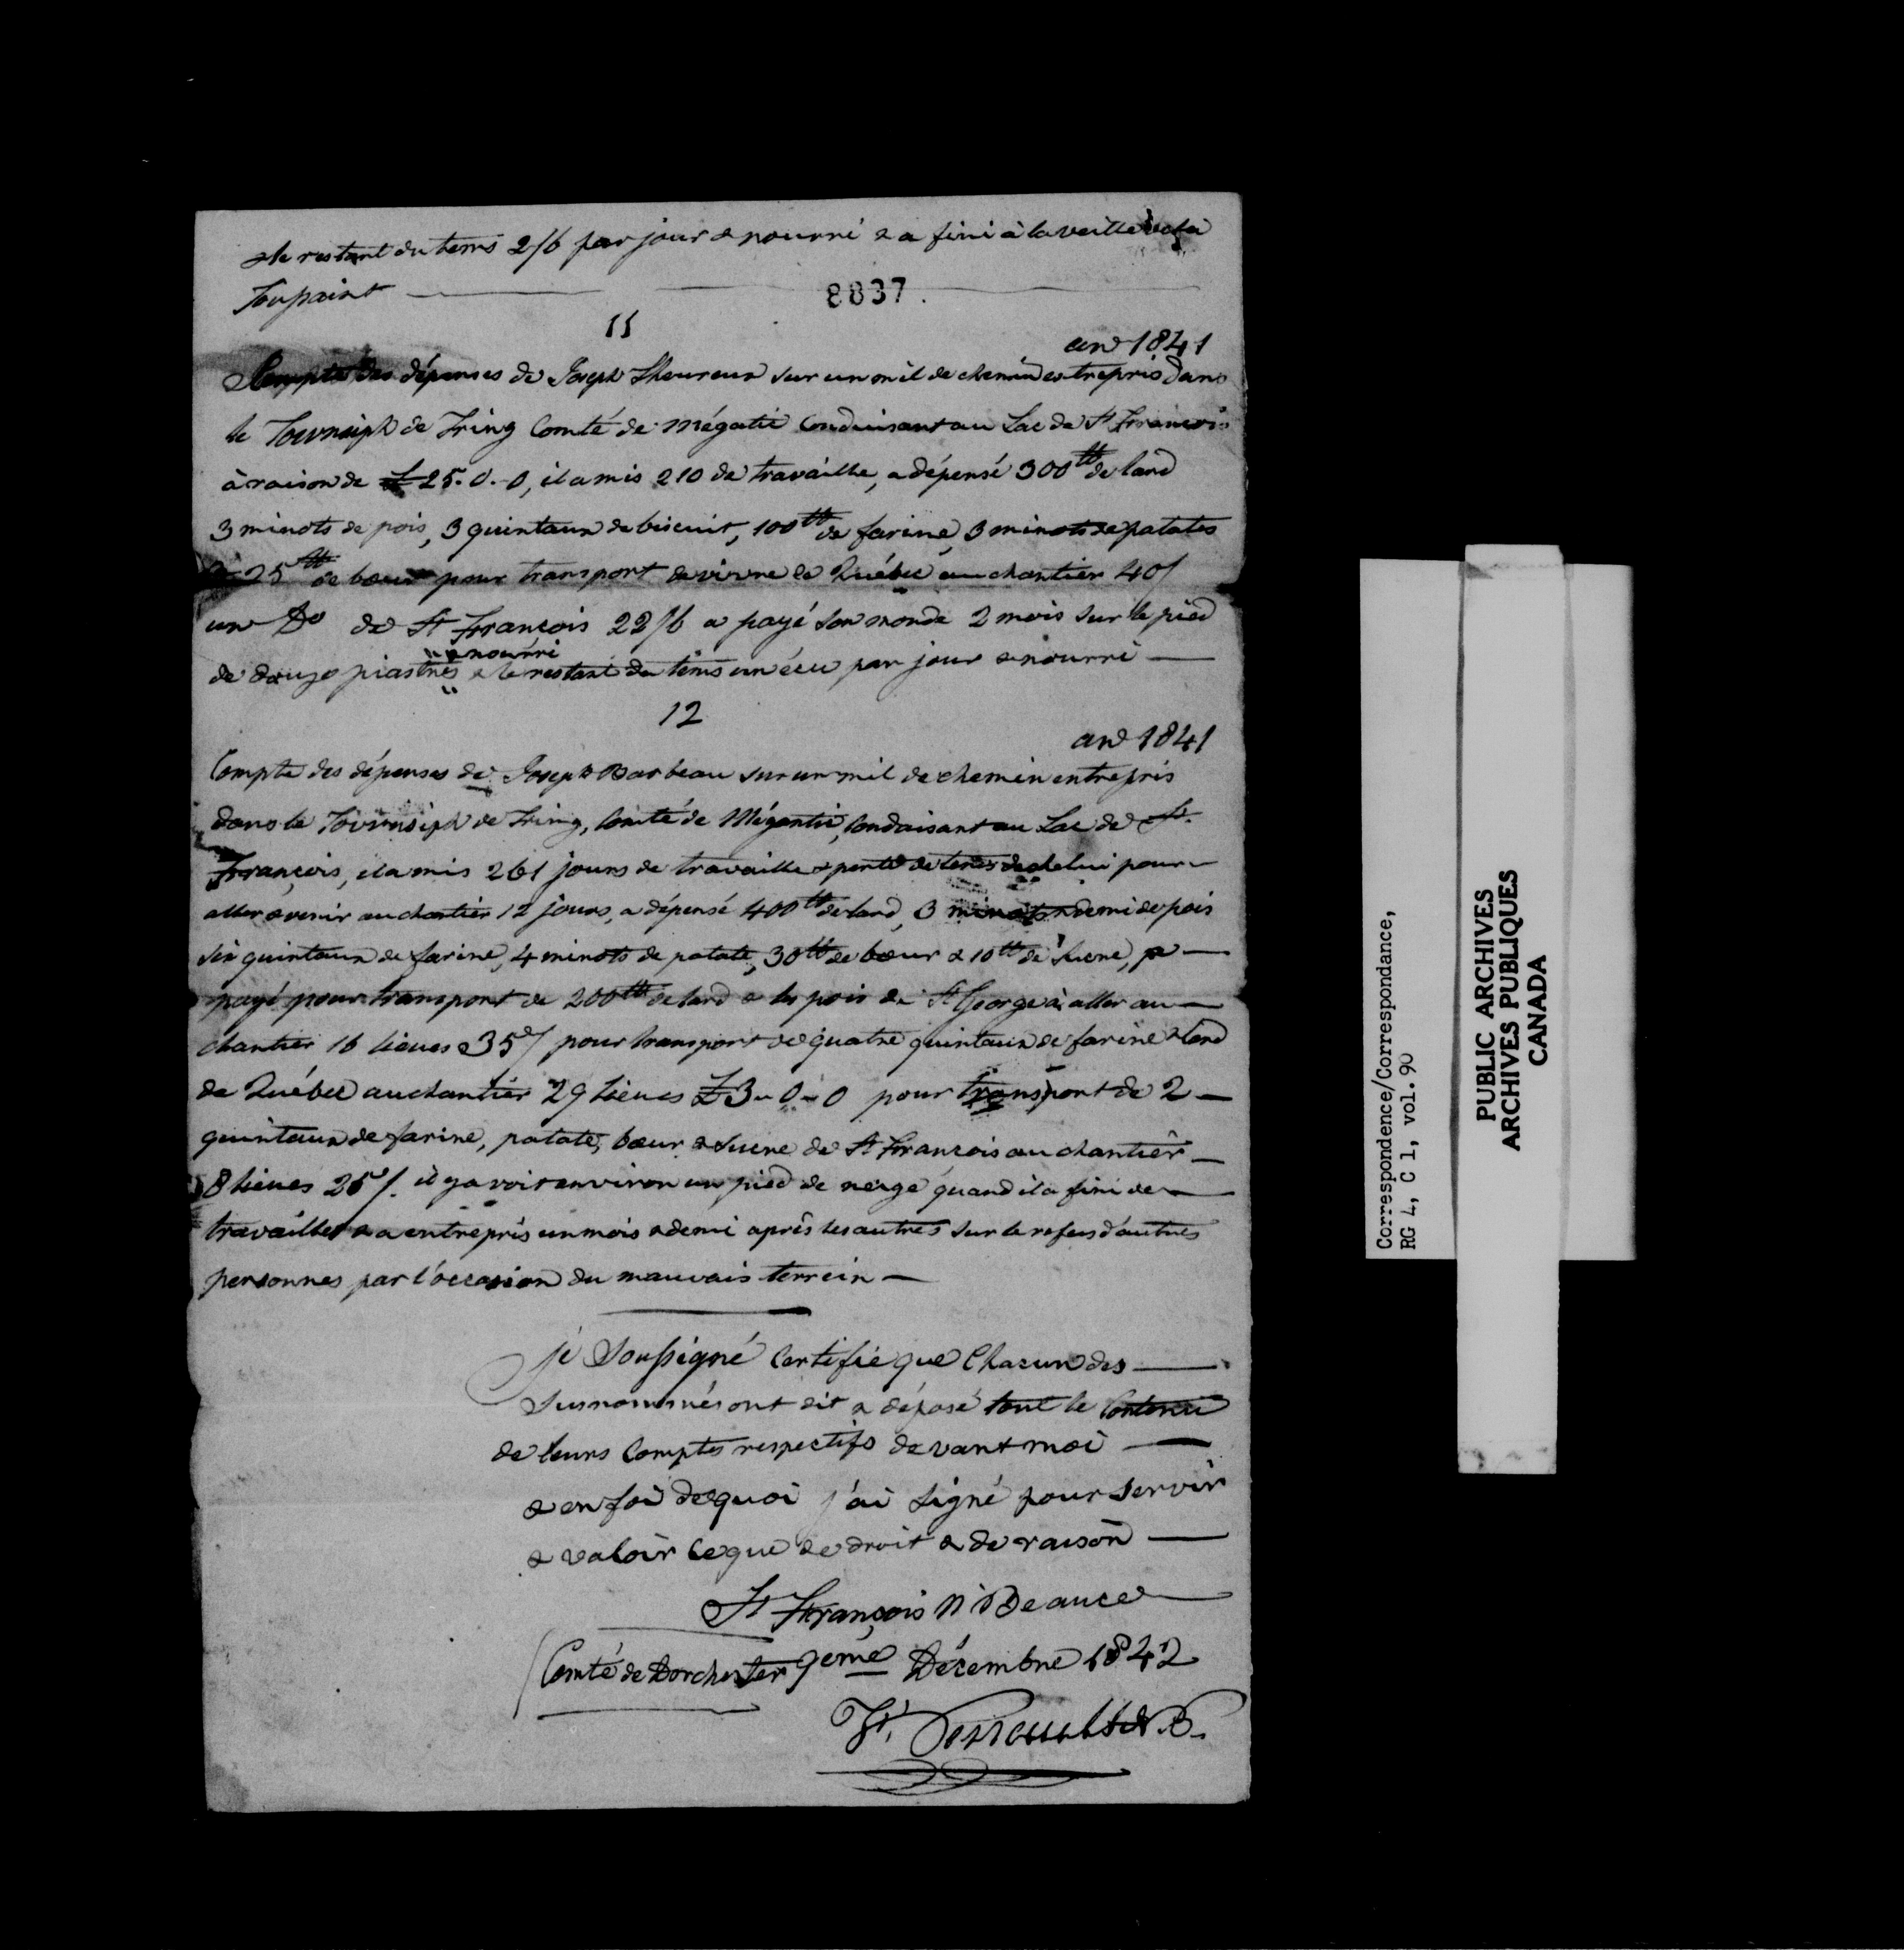 & le restant du tems 2/6 par jour & nourri & a fini à la veille de la
Toussaint
8837.
11
an 1841
Compte des dépenses de Joseph Lheureux sur un mil de chemin entrepris dans
le Townsiph de Tring Comté de Mégatic Conduisant au Lac de St François
à raison de £25.0.0, il a mis 210 de travaille, a dépensé 300 tt de lard
3 minots de pois, 3 quintaux de biscuit, 100 tt de farine, 3 minots de patates
& 25 tt de bœur pour transport de vivre de Québec au chantier 40/
un Do de St François 22/6 a payé son monde 2 mois sur le pied
& nourri
de douze piastres & le restant du tems un écu par jour & nourri
12
an 1841
Compte des dépenses de Joseph Barbeau sur un mil de chemin entrepris
dans le Townsiph de Tring, Comté de Mégantic, Conduisant au Lac de St
François, il a mis 261 jours de travaille & perte de tems de chelui pour
aller & venir au chantier 12 jours, a dépensé 400 tt de lard, 3 minots & demi de pois
six quintaux de farine, 4 minots de patate, 30 tt de bœur & 10 tt de Sucre,
payé pour transport de 200 tt de lard & les pois de St George à aller au
chantier 16 lieues 35/ pour transport de quatre quintaux de farine & lard
de Québec au chantier 29 lieues £3-0-0 pour transport de 2
quintaux de farine, patate, bœur & Sucre de St François au chantier
8 lieues 25/. il y avoit environ un pied de neige quand il a fini de
travailler & a entrepris un mois & demi après les autres sur le refus d'autres
personnes par l'occasion du mauvais terrein
je Soussigné Certifie que Chacun des
Susnommés ont dit & déposé tout le Contenu
de leurs Comptes respectifs devant moi
& en foi de quoi j'ai Signé pour Servir
& valoir ce que de droit & de raison
St François Beauce
Comté de Dorchester 9eme Décembre 1842
Correspondence/Correspondance,
RG 4, C 1, vol. 90
PUBLIC ARCHIVES
ARCHIVES PUBLIQUES
CANADA